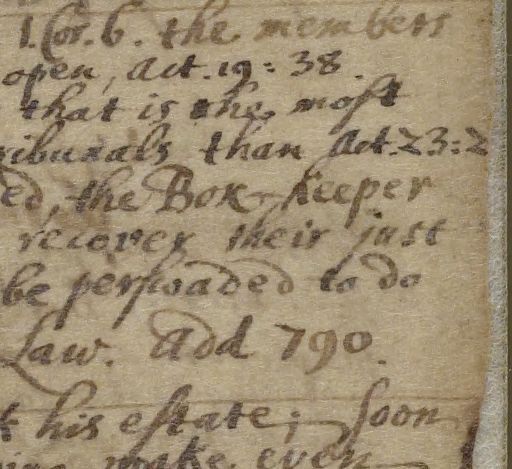 1. Cor. 6. the members
open, Act. 19: 38.
that is the most
ribunals than Act. 23: 2
ed, the Box-keeper
recover their just
be perswaded to do
Law. Add 790.
t his estate; soon
make even